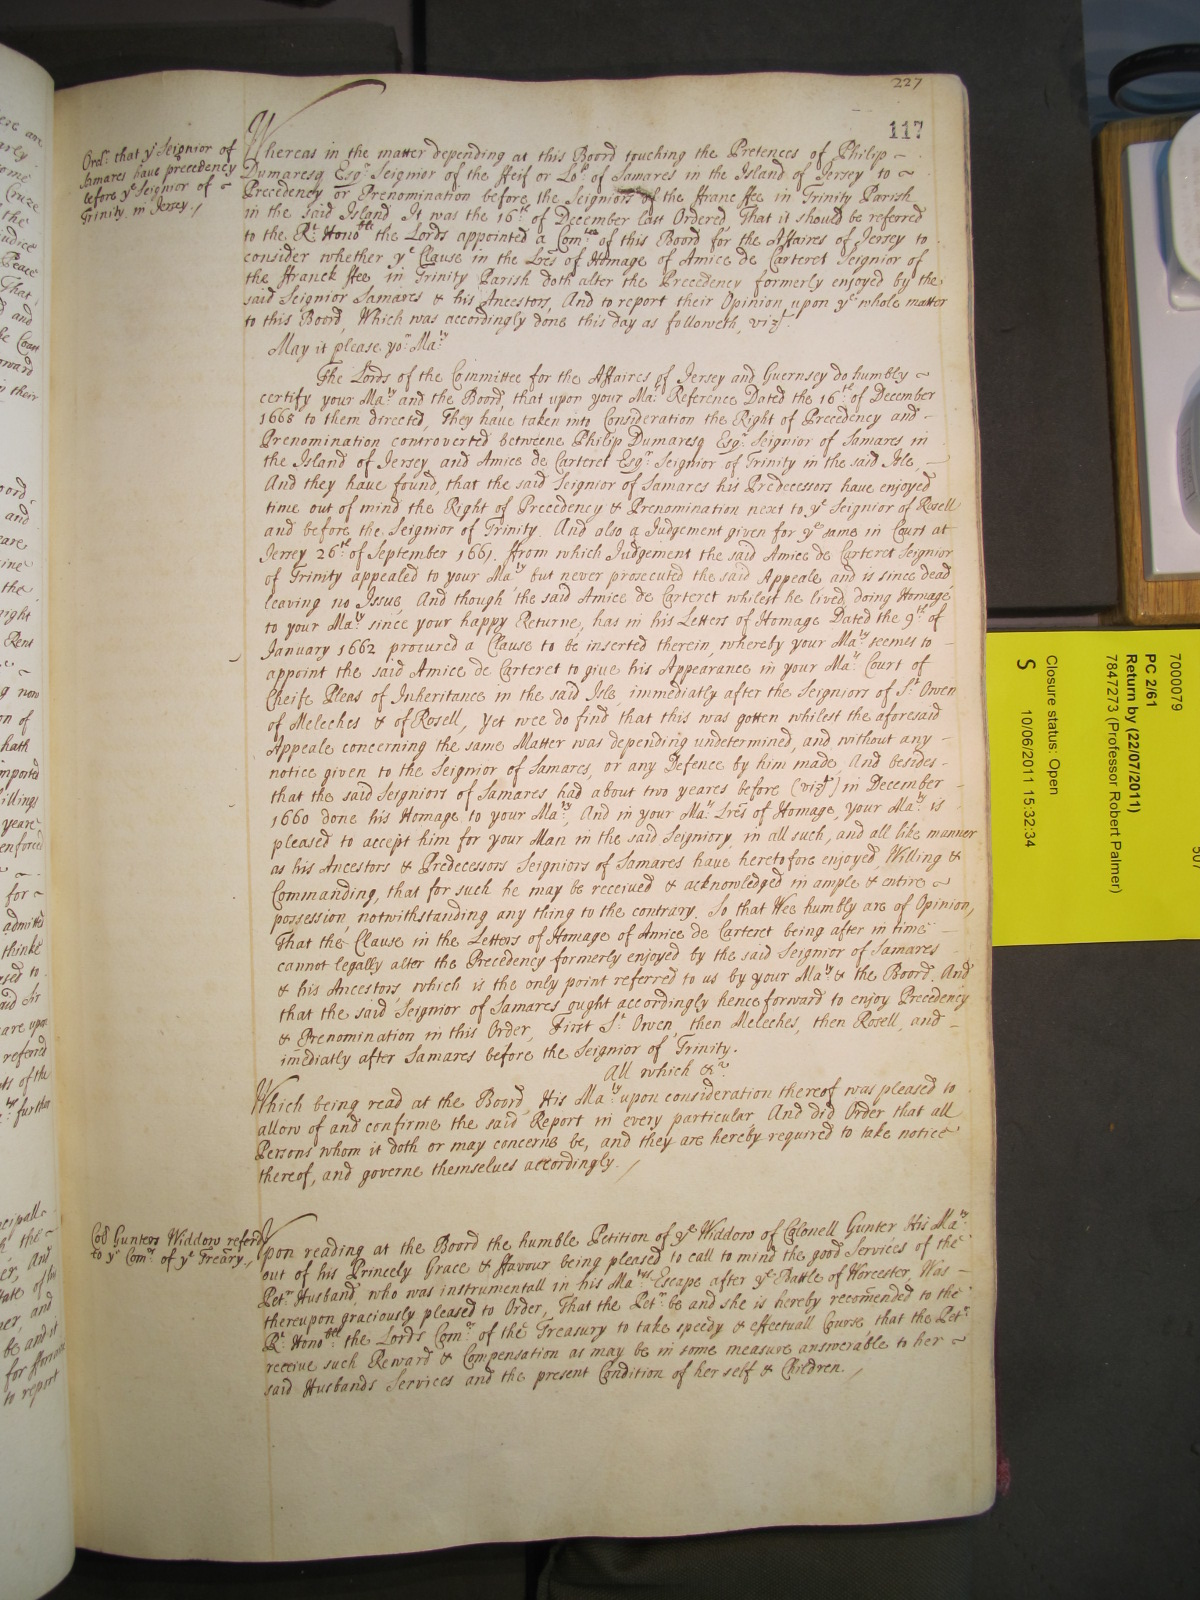 227
117
Ord.r that ye Seignior of
Samares have precedency
before ye Seignior of ~
Trinity in Jersey./
Whereas in the matter depending at this Boord touching the Pretences of Philip ~
Dumaresq Esqr. Seignior of the ffeif or Lop. of Samares in the Island of Jersey to ~
Precedency or Prenomination before the Seigniors of the Franc ffee in Trinity Parish
in the said Island It was the 16th of December last Ordered That it should be referred
to the Rt. Honoble the Lords appointed a Comtee of this Boord for the Affaires of Jersey to
consider whether ye Clause in the Lres of Homage of Amice de Carteret Seignior of
the ffranck ffee in Trinity Parish doth alter the Precedency formerly enjoyed by the
said Seignior Samares & his Ancestors, And to report their Opinion upon ye whole matter
to this Boord, Which was accordingly done this day as followeth, vizt.
May it please yor. Maty
The Lords of the Committee for the Affaires of Jersey and Guernsey do humbly ~
certify your Maty and the Boord, that upon your Mats Reference Dated the 16th of December
1668 to them directed, They have taken into Consideration the Right of Precedency and -
Prenomination controverted betweene Philip Dumaresq Esqr. Seignior of Samares in
the Island of Jersey, and Amice de Carteret Esqr. Seignior of Trinity in the said Isle, -
And they have found, that the said Seignior of Samares his Predecessors have enjoyed
time out of mind the Right of Precedency & Prenomination next to ye Seignior of Rosell
and before the Seignior of Trinity. And also a Judgement given for ye same in Court at
Jersey 26th of September 1661. from which Judgement the said Amice de Carteret Seignior
of Trinity appealed to your Maty but never prosecuted the said Appeale and is since dead
leaving no Issue, And though the said Amice de Carteret whilest he lived, doing Homage
to your Maty since your happy Returne, has in his Letters of Homage Dated the 9th of
January 1662 procured a Clause to be inserted therein, whereby your Maty seemes to -
appoint the said Amice de Carteret to give his Appearance in your Mats Court of
Cheife Pleas of Inheritance in the said Isle, immediatly after the Seigniors of St. Owen
of Meleches & of Rosell, yet wee do find that this was gotten whilest the aforesaid
Appeale concerning the same Matter was depending undetermined, and without any -
notice given to the Seignior of Samares, or any Defence by him made, And besides -
that the said Seigniors of Samares had about two yeares before (vizt) in December
1660 done his Homage to your Maty, And in your Mats Lres of Homage, your Maty is
pleased to accept him for your Man in the said Seigniory, in all such, and all like manner
as his Ancestors & Predecessors Seigniors of Samares have heretofore enjoyed, Willing &
Commanding, that for such he may be received & acknowledged in ample & entire ~
possession, notwithstanding any thing to the contrary. So that Wee humbly are of Opinion,
That the Clause in the Letters of Homage of Amice de Carteret being after in time -
cannot legally alter the Precedency formerly enjoyed by the said Seignior of Samares
& his Ancestors which is the only point referred to us by your Maty & the Boord. And
that the said Seignior of Samares ought accordingly henceforward to enjoy Precedency
& Prenomination in this Order, First St. Owen, then Meleches, then Rosell, and -
imediatly after Samares before the Seignior of Trinity.
All which &c
Which being read at the Boord, His Maty upon consideration thereof was pleased to
allow of and confirme the said Report in every particular And did Order that all
Persons whom it doth or may concerne be, and they are hereby required to take notice
thereof, and governe themselves accordingly. /
Coll Gunters Widdow referd
to ye Comrs of ye Treāry./
Upon reading at the Boord the humble Petition of ye Widdow of Colonell Gunter His Maty
out of his Princely Grace & Favour being pleased to call to mind the good Services of the
Petrs Husband, who was instrumentall in his Mats Escape after ye Battle of Worcester, Was -
thereupon graciously pleased to Order, That the Petr be and she is hereby recomended to the
Rt. Honoble the Lords Comrs of the Treasury to take speedy & effectuall Course that the Petr
receive such Reward & Compensation as may be in some measure answerable to her ~
said Husbands Services and the present Condition of her self & Children. /
7000079
PC 2/61
Return by (22/07/2011)
7847273 (Professor Robert Palmer)
Closure status: Open
S 10/06/2011 15:32:34